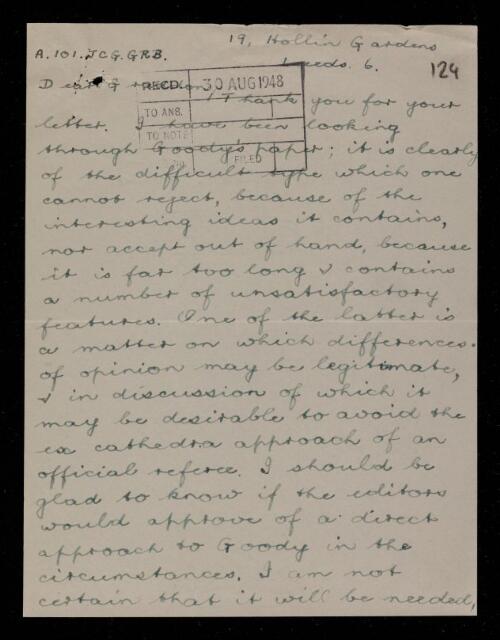 19, Hollin Gardens
A.101.JCG.GRB. Leeds. 6. 124
RECD. 30 AUG 1948
TO ANS.
TO NOTE
FILED
Dear Thank you for your
letter. I have been looking
through Goody's paper; it is clearly
of the difficult type which one
cannot reject, because of the
interesting ideas it contains,
nor accept out of hand, because
it is far too long & contains
a number of unsatisfactory
features. One of the latter is
a matter on which differences
of opinion may be legitimate,
& in discussion of which it
may be desirable to avoid the
ex cathedra approach of an
official referee. I should be
glad to know if the editors
would approve of a direct
approach to Goody in the
circumstances. I am not
certain that it will be needed,